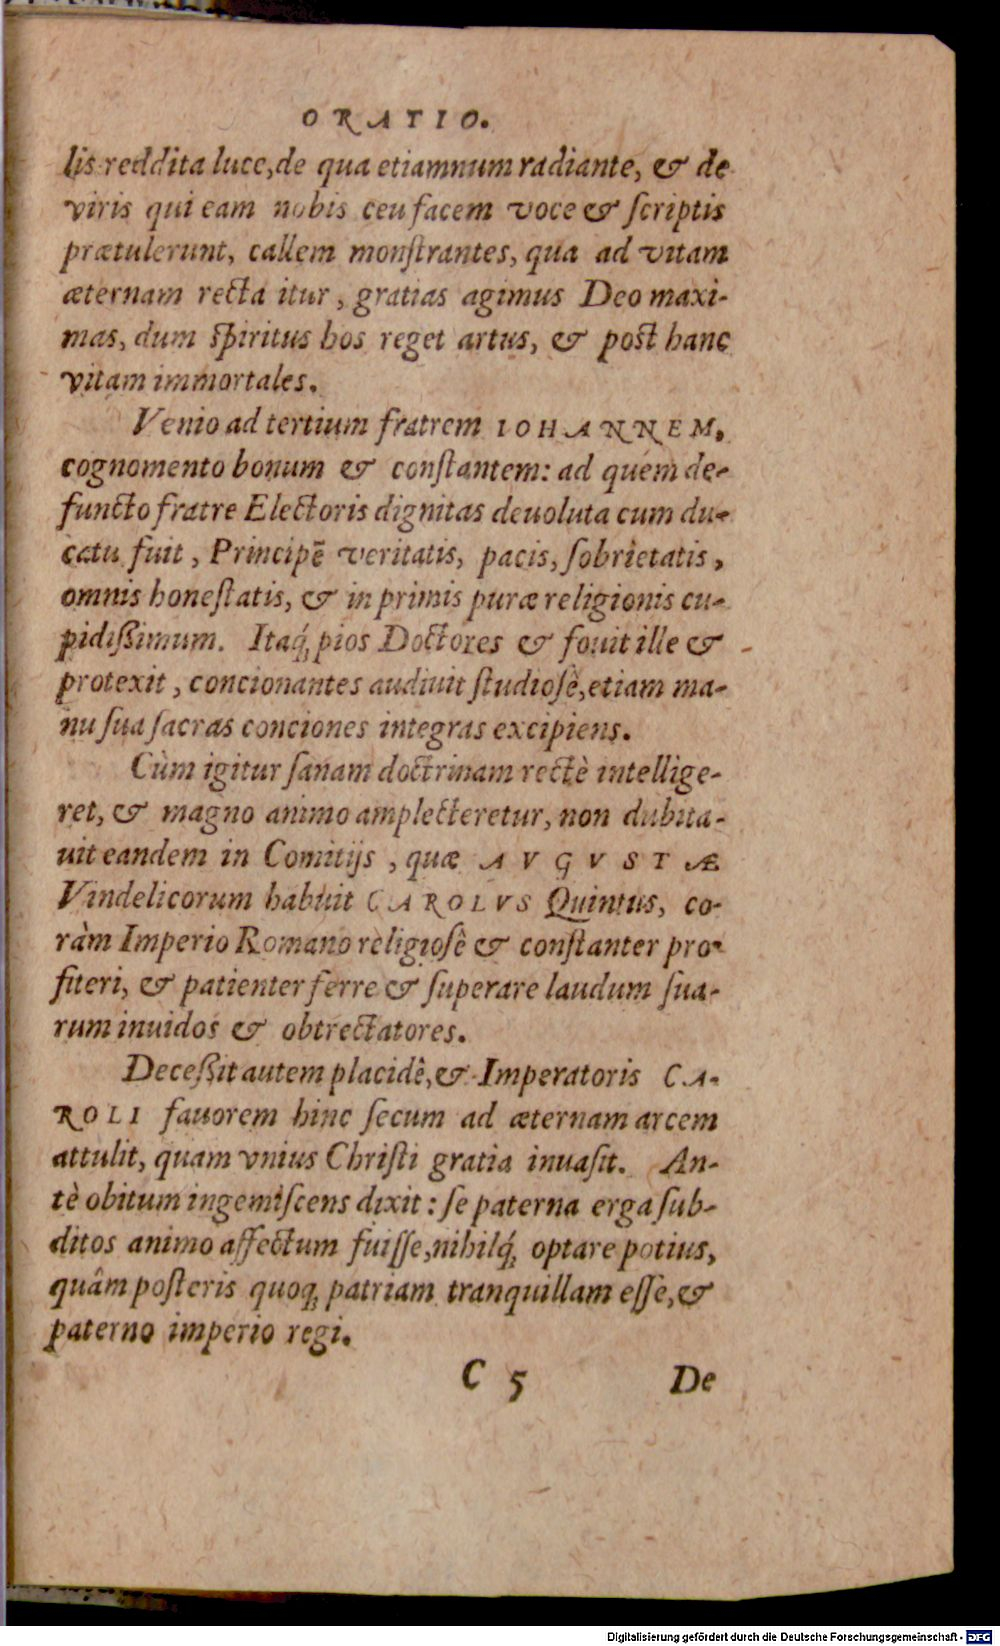 ORATIO.
lis reddita luce, de qua etiamnum radiante, & de
viris qui eam nobis ceu facem voce & ſcriptis
prætulerunt, callem monſtrantes, qua ad vitam
æternam recta itur, gratias agimus Deo maxi-
mas, dum ſpiritus hos reget artus, & poſt hanc
vitam immortales.
Venio ad tertium fratrem IOHANNEM,
cognomento bonum & conſtantem: ad quem de-
functo fratre Electoris dignitas deuoluta cum du-
catu fuit, Principē veritatis, pacis, ſobrietatis,
omnis honeſtatis, & in primis puræ religionis cu-
pidißimum. Itaq́; pios Doctores & fouit ille &
protexit, concionantes audiuit ſtudioſè, etiam ma-
nu ſua ſacras conciones integras excipiens.
Cùm igitur ſanam doctrinam rectè intellige-
ret, & magno animo amplecteretur, non dubita-
uit eandem in Comitijs, quæ AVGVSTÆ
Vindelicorum habuit CAROLVS Quintus, co-
ràm Imperio Romano religioſè & conſtanter pro-
fiteri, & patienter ferre & ſuperare laudum ſua-
rum inuidos & obtrectatores.
Deceßit autem placidê, & Imperatoris CA-
ROLI fauorem hinc ſecum ad æternam arcem
attulit, quam vnius Chriſti gratia inuaſit. An-
tè obitum ingemiſcens dixit: ſe paterna erga ſub-
ditos animo affectum fuiſſe, nihilq́; optare potius,
quâm poſteris quoq; patriam tranquillam eſſe, &
paterno imperio regi.
C 5 De
Digitalisierung gefördert durch die Deutsche Forschungsgemeinschaft - DFG